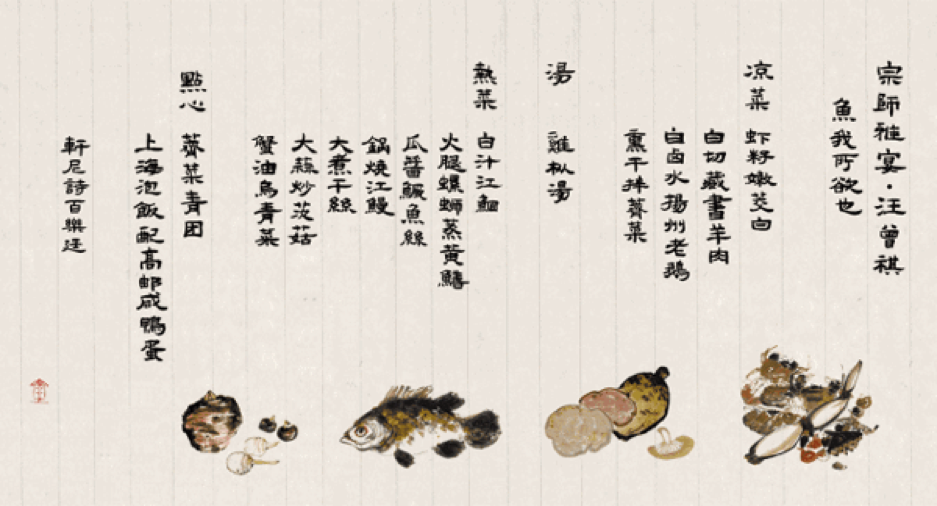 宗師雅宴·汪曾祺
魚我所欲也
凉菜 虾籽嫩茭白
白切藏書羊肉
白卤水揚州老鹅
熏干拌薺菜
湯 雞枞湯
熱菜 白汁江鮰
火腿螺螄蒸黄鱔
瓜醬鱖魚絲
鍋燒江鰻
大煮干絲
大蒜炒茨菇
蟹油烏青菜
點心 薺菜青团
上海泡飯配高邮咸鴨蛋
軒尼詩百樂廷